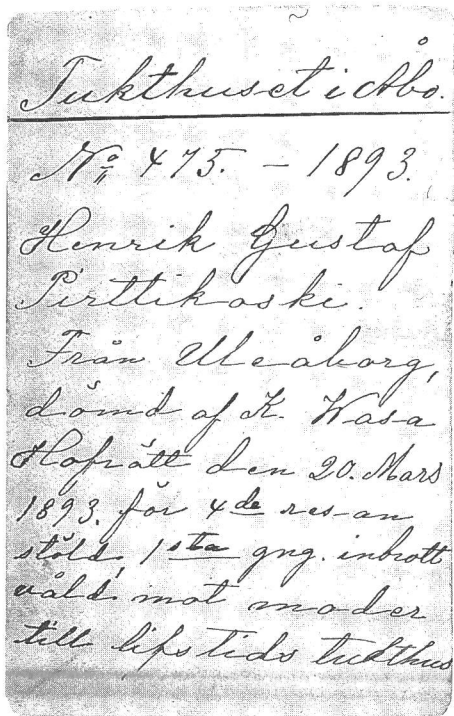 Tukthuset i Åbo.
No 475. – 1893.
Henrik Gustaf
Pirttikoski.
Från Uleåborg,
dömd af K. Wasa
Hofrätt den 20. Mars
1893. för 4de resan
stöld, 1sta gng. inbrott
våld mot moder
till lifstids tukthus